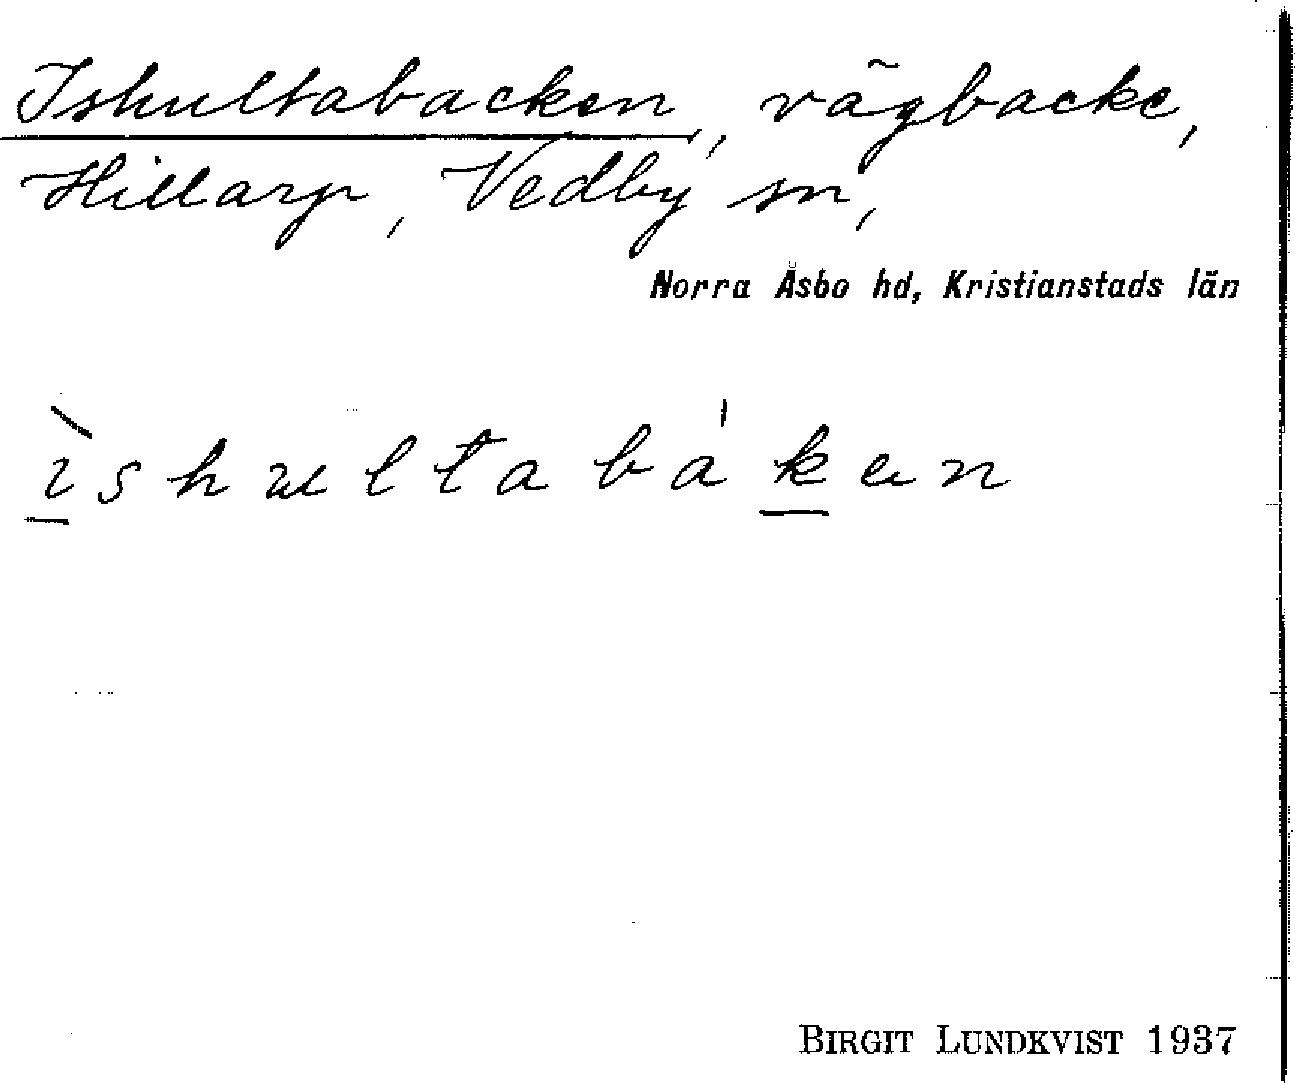 Ishultabacken, vägbacke,
Hillarp, Vedby sn,
Norra Åsbo hd, Kristianstads län
ìshultabáken
BIRGIT LUNDKVIST 1937